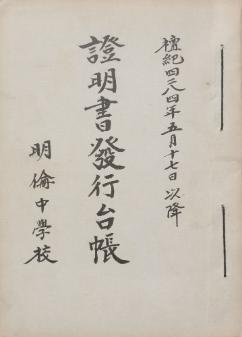 檀紀四二八四年五月十七日以降
證明書發行台帳
明倫中學校